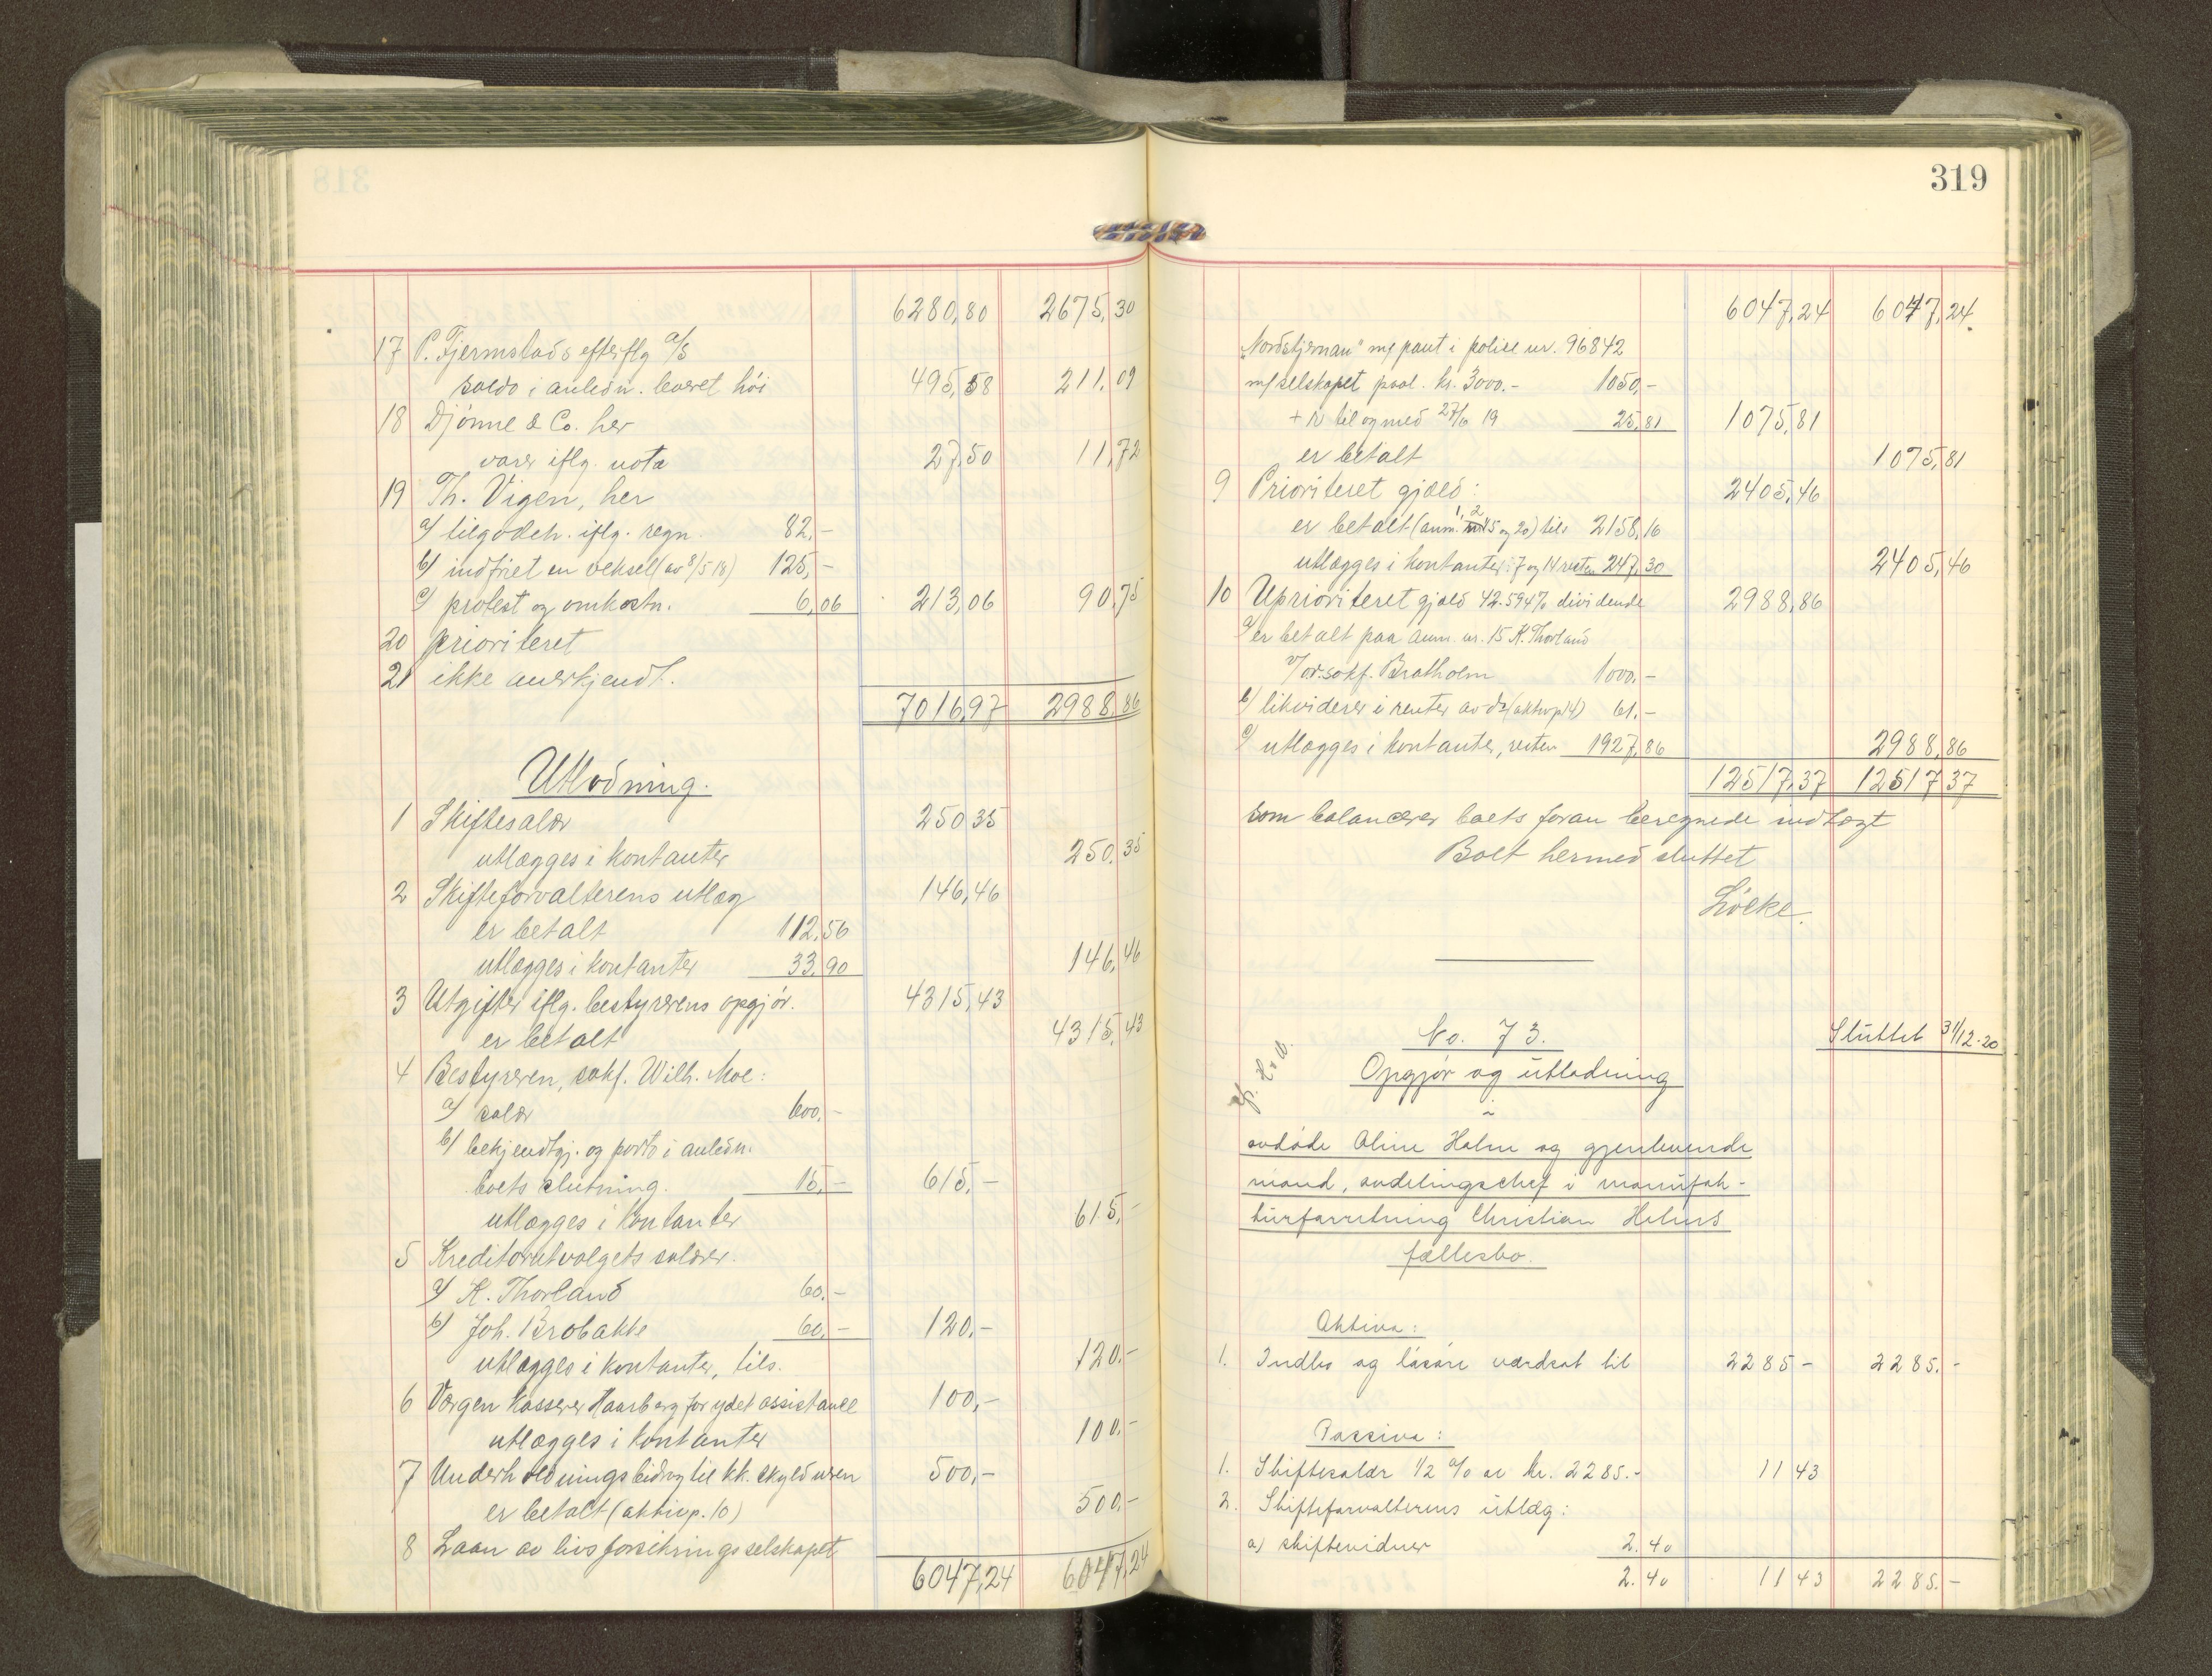 318
6280,80 2675,30
17 P. Fjermstads efterflg A/S
saldo i anledn. levert höi 495,58 211,09
18 Djönne & Co. her
varer iflg. nota 27,50 11,72
19 Th. Vigen, her
a/ tilgodeh. iflg. regn. 82,-
b/ indfriet en veksel (av 8/5 18) 125,-
c/ protest og omkostn. 6,06 213,06 90,75
20 prioriteret
21 ikke anerkjendt.
7016,97 2988,86
Utlodning.
1 Skiftesalær 250,35
utlægges i kontanter 250,35
2 Skifteforvalterens utlæg 146,46
er betalt 112,56
utlægges i kontanter 33,90 146,46
3 Utgifter iflg. bestyrerens opgjör. 4315,43
er betalt 4315,43
4 Bestyreren, sakf. Wilh. Moe:
a/ salær 600,-
b/ bekjendtgj. og porto i anledn.
boets slutning. 15,- 615,-
utlægges i kontanter 615,-
5 Kreditorutvalgets salærer.
a/ K. Thorland 60,-
b/ Joh. Brobakke 60,- 120,-
utlægges i kontanter, tils. 120,-
6 Værgen kasserer Haarberg for ydet assistance 100,-
utlægges i kontanter 100,-
7 Underholdningsbidrag til kk. skyldneren 500,-
er betalt (aktivp. 10) 500,-
8 Laan av livsforsikringsselskapet
6047,24 6047,24
319
6047,24 6047,24
"Nordstjernan" m/ pant i polise nr. 96842
m/ selskapet paal. kr. 3000.- 1050,-
+ R til og med 27/6 19 25,81 1075,81
er betalt 1075,81
9 Prioriteret gjæld: 2405,46
er betalt (anm. 1, 2 15 og 20) tils 2158,16
utlægges i kontanter: 7 og 14 resten 247,30 2405,46
10 Uprioriteret gjæld 42.594% dividende 2988,86
a/ er betalt paa anm. nr. 15 K. Thorland
v/ or. sakf. Bratholm 1000.-
b/ likviderer i renter av do (aktivp 14) 61.-
c/ utlægges i kontanter, resten 1927,86 2988,86
12517,37 12517,37
som balancerer boets foran beregnede indtægt
Boet hermed sluttet
Löcke.
No. 73. Sluttet 31/12-20
Opgjör og utlodning
i
avdöde Oline Holm og gjenlevende
mand, avdelingschef i manufak-
turforretning Christian Holms
fællesbo.
Aktiva:
1. Indbo og lösöre værdsat til 2285- 2285.-
Passiva:
1. Skiftesalær 1/2 % av kr. 2285.- 11 43
2. Skifteforvalterens utlæg:
a) skiftevidner 2.40
2.40 11 43 2285.-